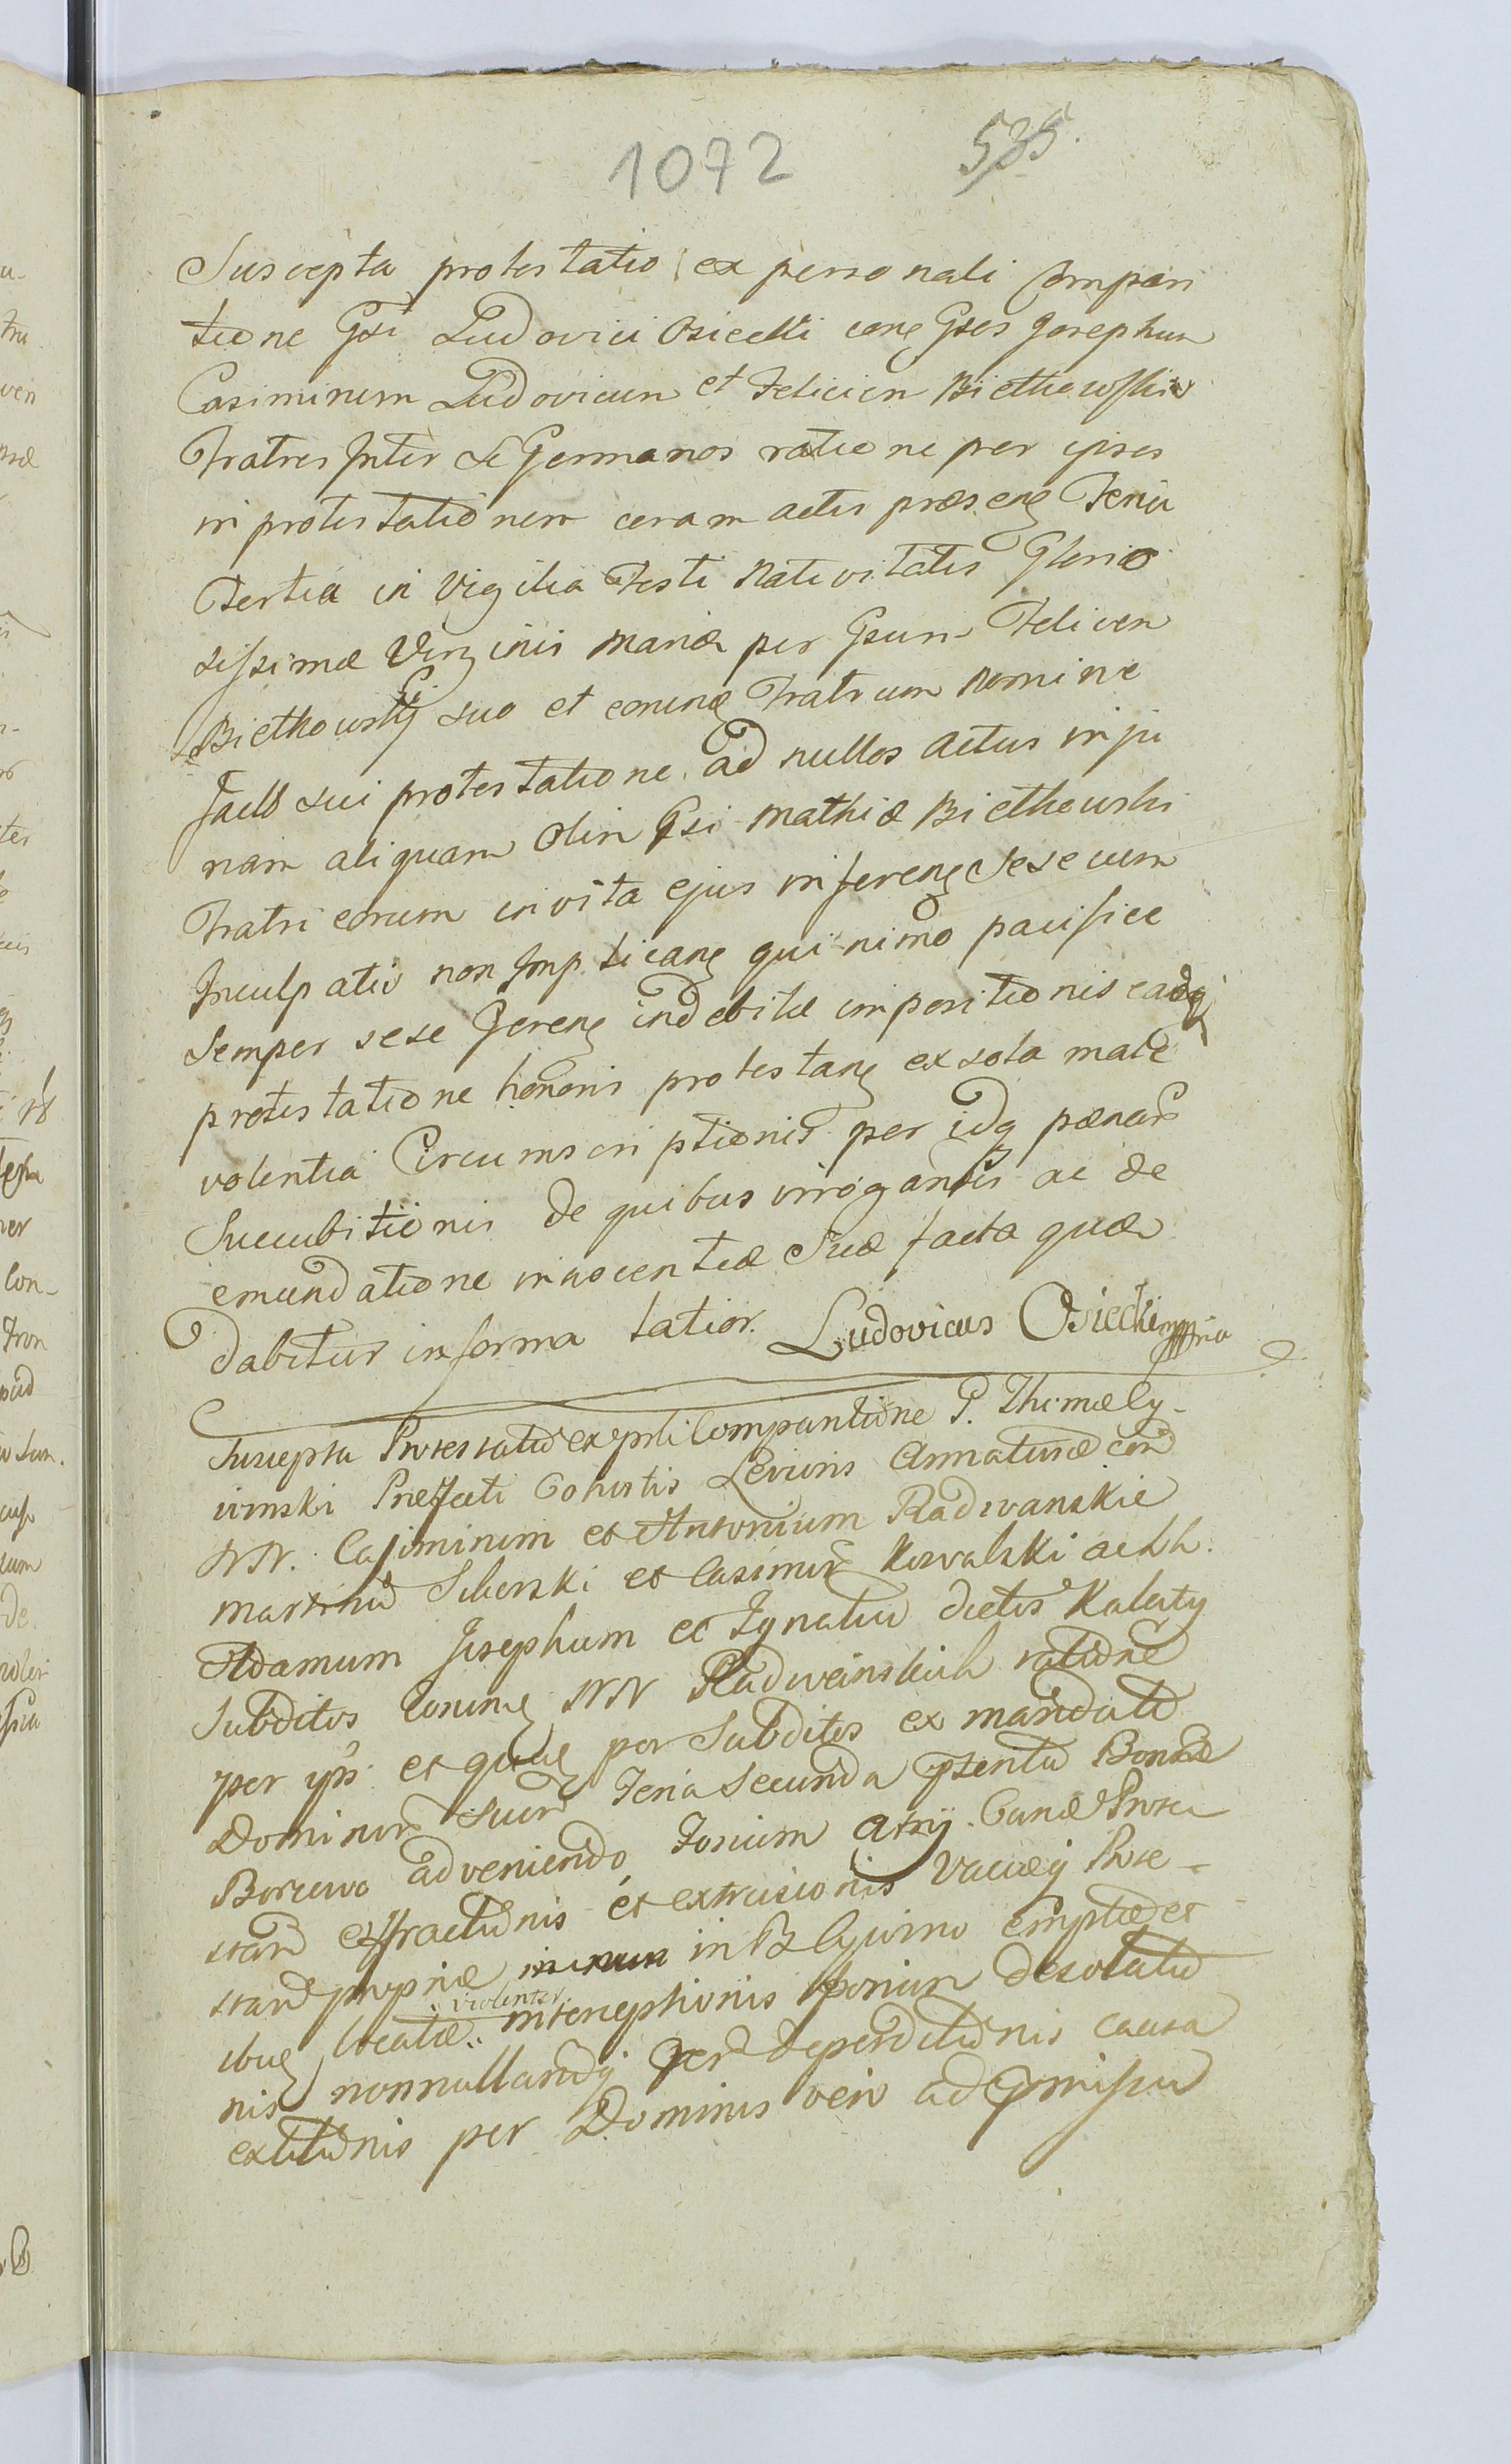 1072 535.
Suscepta protestatio ex personali Compari
tione Gsi Ludovici Osiecki cong Gsos Josephum
Casimirum Ludovicum et Felicien Biethowskie
Fratres Inter se Germanos ratione per ipsos
in protestationem coram actis præseng Feria
Tertia in Vigilia Festi Nativitatis Glorio
sissimæ Virginis Mariæ per Gsum Felicien
Biethowski suo et eorung Fratrum Nomine
facto sui protestatione ad nullos actus inju
riam aliquam Olim Gsi Mathiæ Biethowski
Fratri eorum in vita ejus infereng Sesecum
Inculpatio non Implicang qui nimo pacifice
Semper sese Gereng indebitæ impositionis eadq
protestatione honoris protestang ex sola male
volentia Circumscriptionis per idq pænar
Succubitionis de quibus irrogantis ac de
emundatione innocentiæ Suæ facta quæ
dabitur in forma latior. Ludovicus Osiecki mppria
Suscepta Protestatio ex psli Comparitione G. Thomæ Cy-
Præfecti Cohortis Levioris Armaturæ con
NN. Casimirum et Antonium Radwanskie
Martinu Siberski et Casimir Kowalski ac hh.
Adamum Josephum et Ignatiu dictos Kalaty
Subditos eorung NN Radwanskich ratione
per ips et per Subditos ex mandato
Dominor suor Feria Secunda psenti Bonæ
Borzewo adveniendo
effractionis et extrusionis
propriæ in B emptæ et
ibig locatæ violenter interceptionis desolatio
nis nonnullarumq deperditionis causa
per Dominus vero ad pmissu